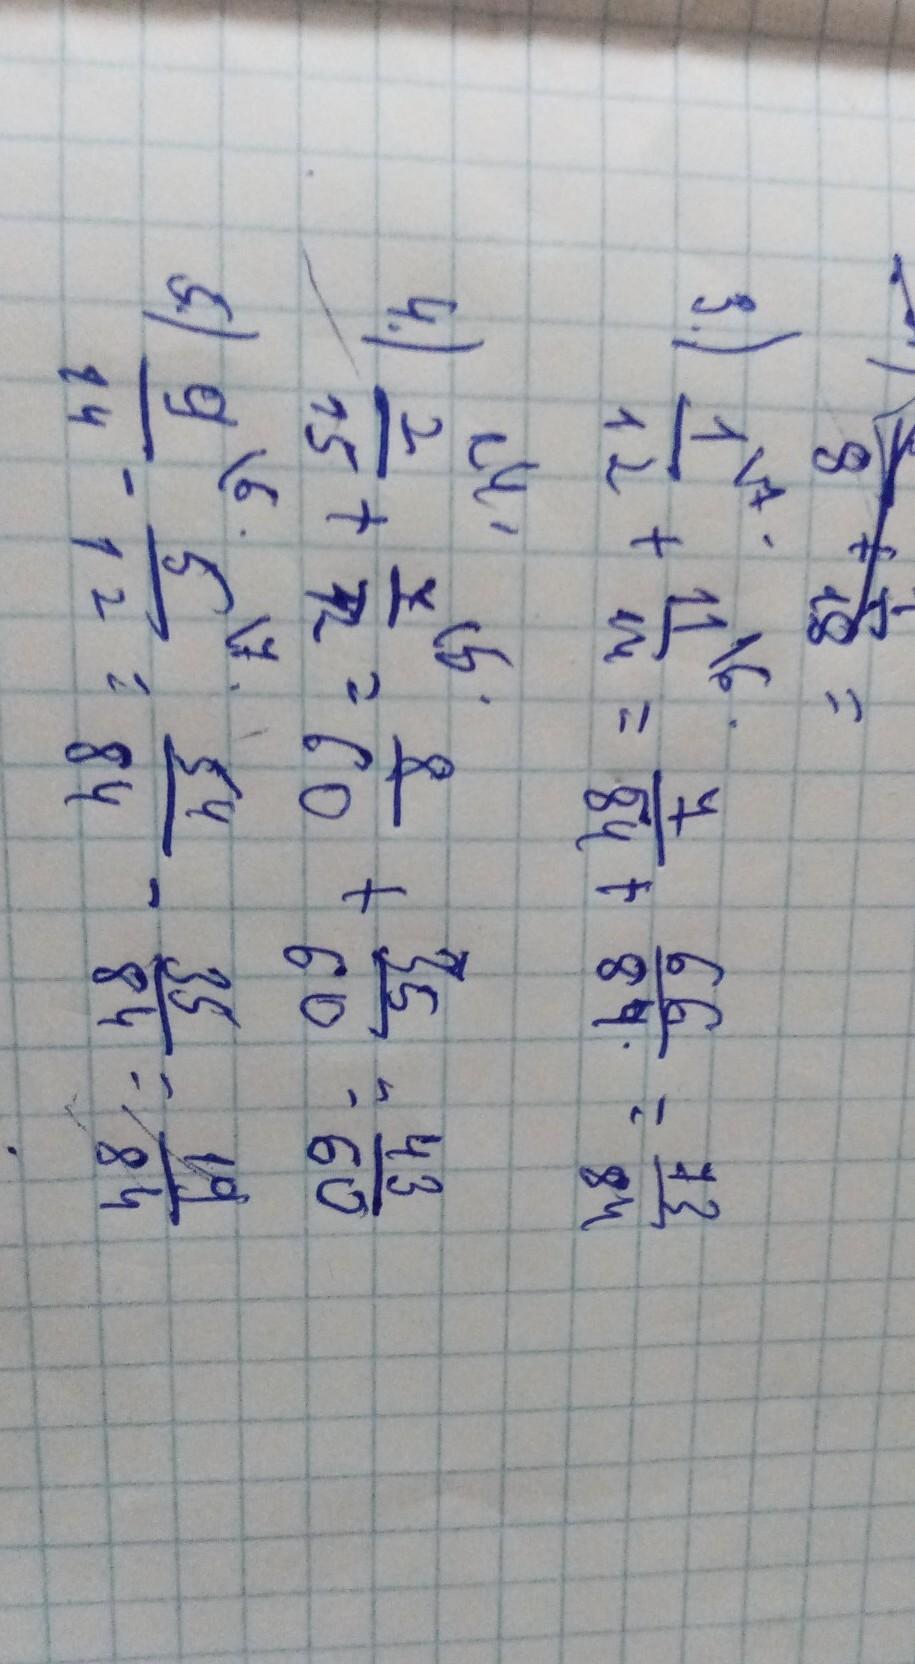 8 + 18 =
3.) 1/12 \7 + 11/14 \6 = 7/84 + 66/84 = 73/84
4.) 2/15 \4 + 7/12 \5 = 8/60 + 35/60 = 43/60
5.) 9/14 \6 - 5/12 \7 = 54/84 - 35/84 = 19/84